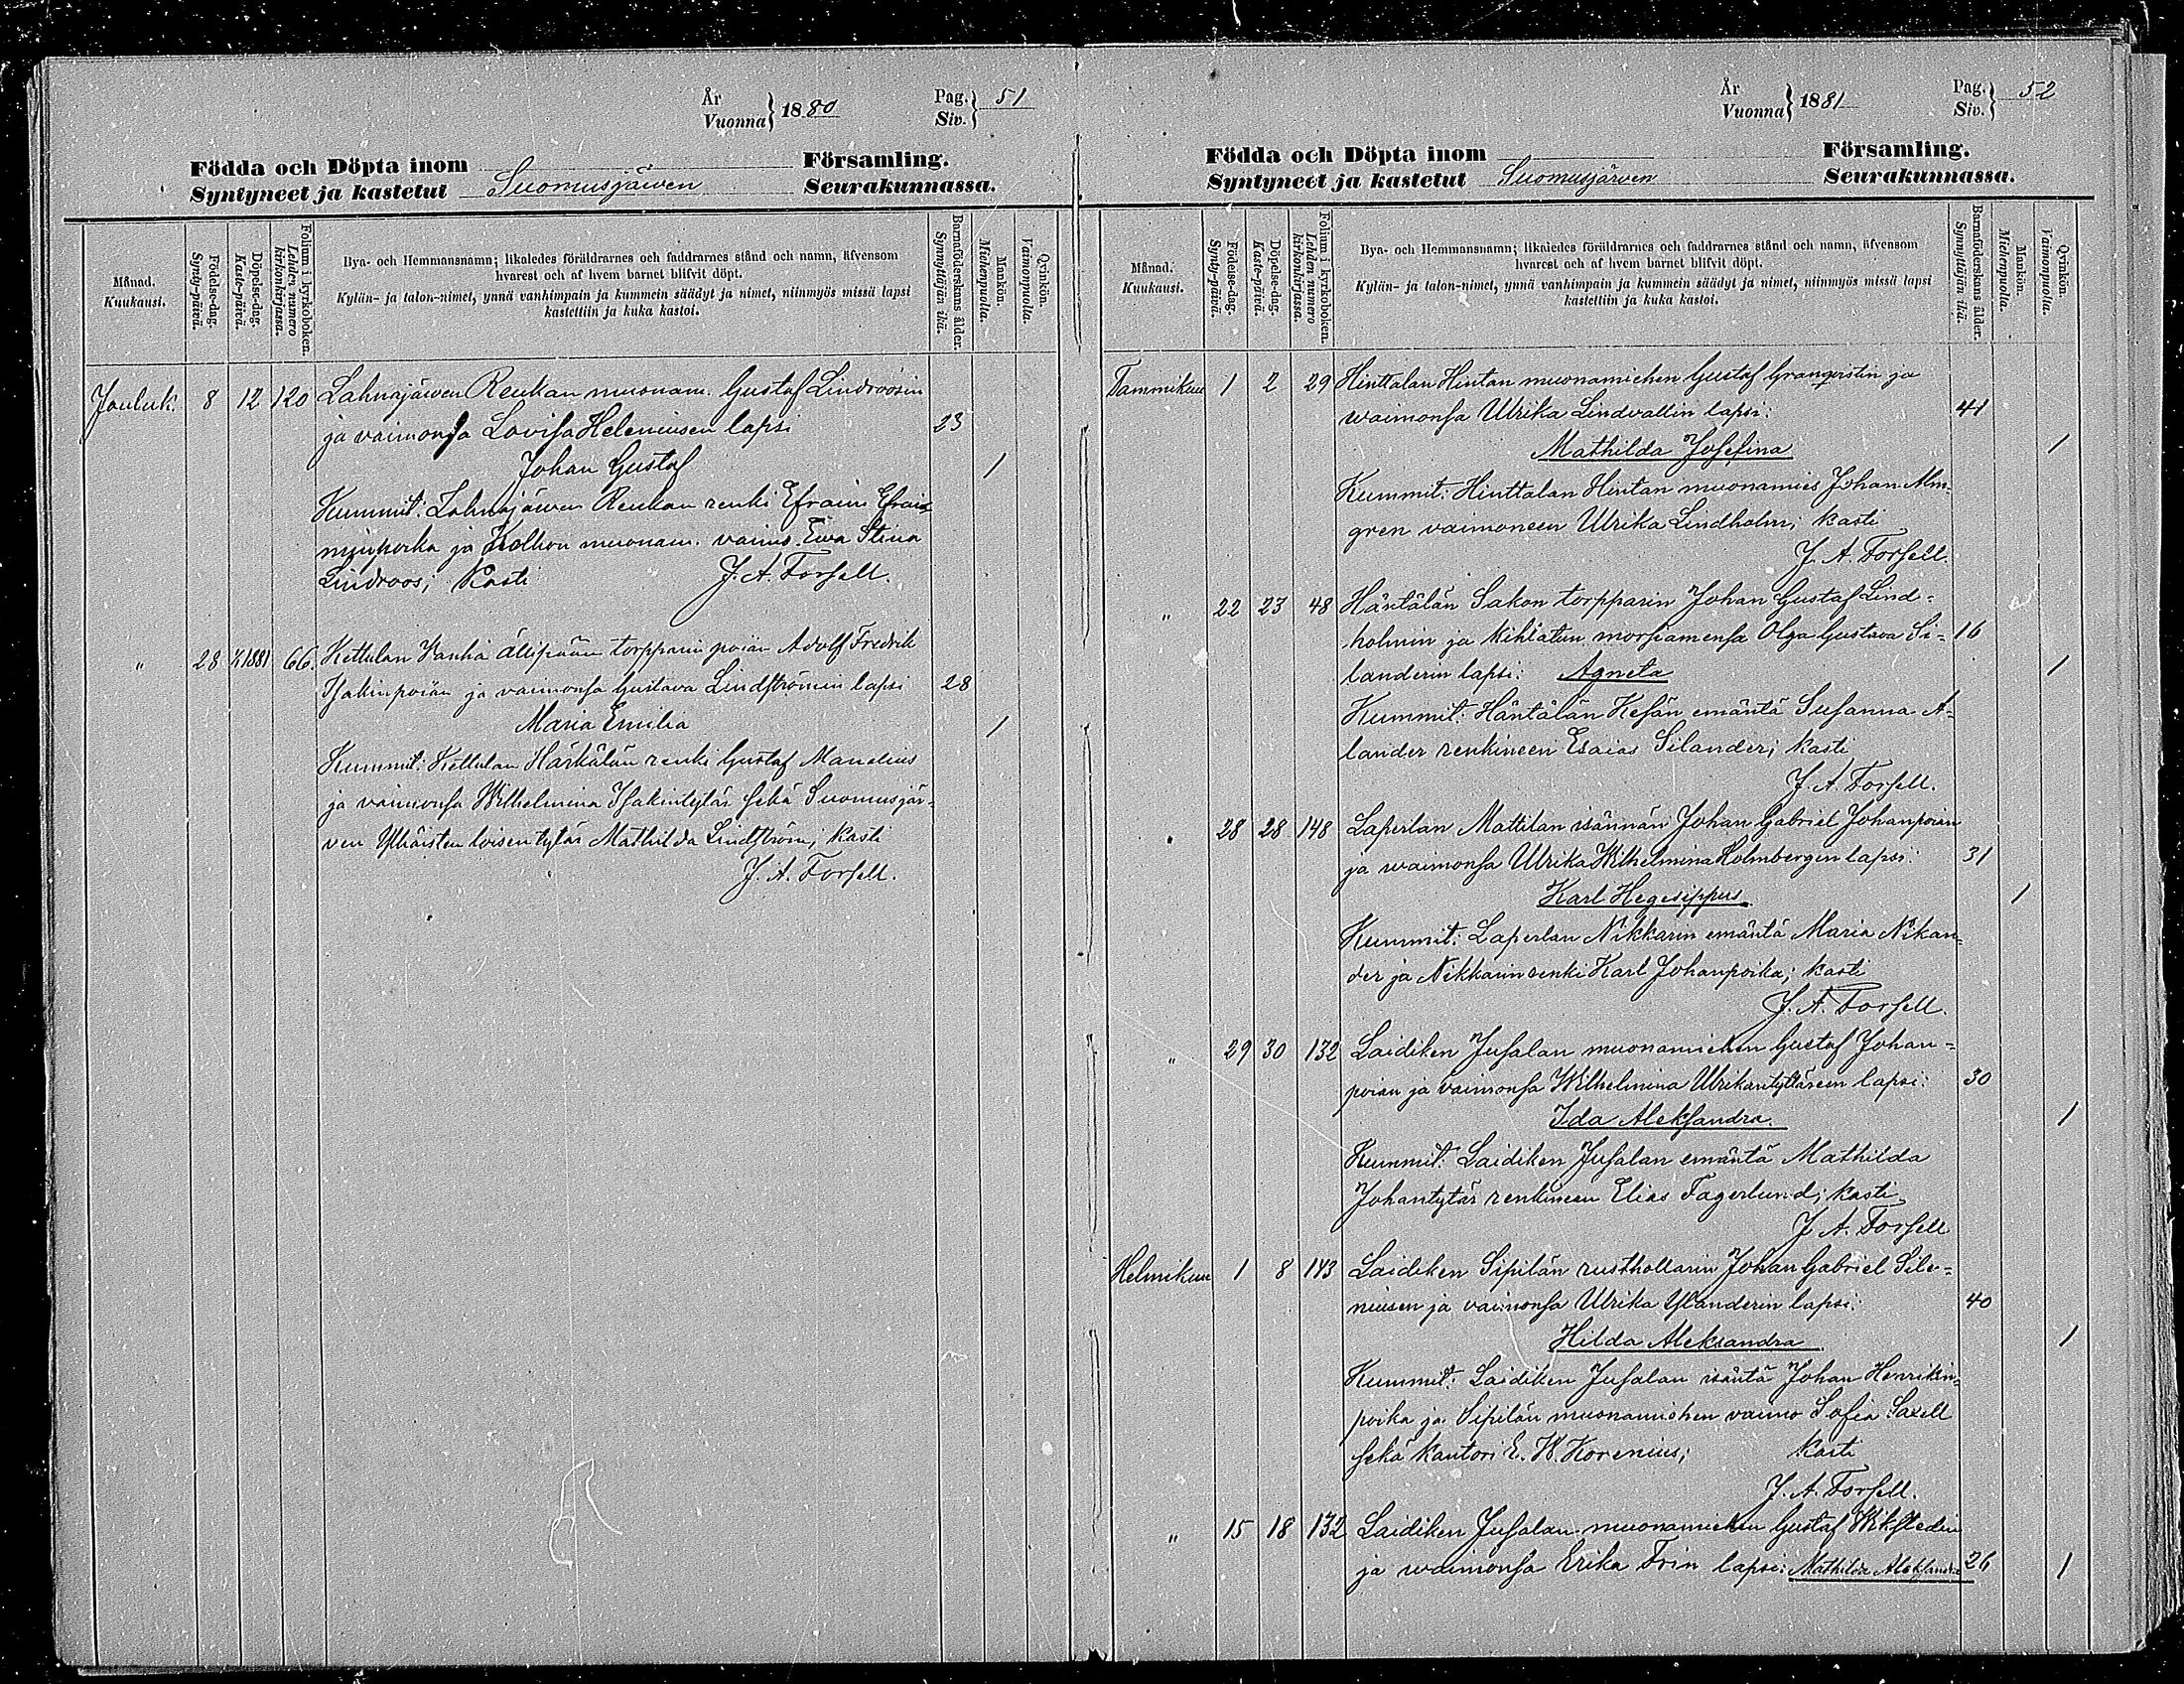 År
Vuonna } 1880
Pag.
Siv. } 51
Födda och Döpta inom Församling.
Syntyneet ja kastetut Suomusjärven Seurakunnassa.
Månad.
Kuukausi.
Födelse-dag.
Synty-päivä.
Döpelse-dag.
Kaste-päivä.
Folium i kyrkoboken.
Lehden numero
kirkonkirjassa.
Bya- och Hemmansnamn; likaledes föräldrarnes och faddrarnes stånd och namn, äfvensom
hvarest och af hvem barnet blifvit döpt.
Kylän- ja talon-nimet, ynnä vanhimpain ja kummein säädyt ja nimet, niinmyös missä lapsi
kastettiin ja kuka kastoi.
Barnaföderskans ålder.
Synnyttäjän ikä.
Mankön.
Miehenpuolia.
Qvinkön.
Vaimonpuolia.
Jouluk. 8 12 120 Lahnajärven Reukan muonam. Gustaf Lindroosin
ja vaimonsa Lovisa Heleniusen lapsi 23
Johan Gustaf 1
Kummit: Lahnajärven Reukan renki Efraim Efrai-
minpoika ja Kolhon muonam. vaimo Ewa Stina
Lindroos; Kasti J. A. Forsell.
" 28 1/1 1881 66. Kettulan Vanha torpparin poian Adolf Fredrik
Isakinpoian ja vaimonsa Gustava Lindströmin lapsi 28
Maria Emilia 1
Kummit: Kettulan Härkälän renki Gustaf Mandelius
ja vaimonsa Wilhelmina Isakintytär sekä Suomusjär-
ven Ylhäisten loisen tytär Mathilda Lindström; kasti
J. A. Forsell.
År
Vuonna } 1881
Pag.
Siv. } 52
Födda och Döpta inom Församling.
Syntyneet ja kastetut Suomusjärven Seurakunnassa.
Månad.
Kuukausi.
Födelse-dag.
Synty-päivä.
Döpelse-dag.
Kaste-päivä.
Folium i kyrkoboken.
Lehden numero
kirkonkirjassa.
Bya- och Hemmansnamn; likaledes föräldrarnes och faddrarnes stånd och namn, äfvensom
hvarest och af hvem barnet blifvit döpt.
Kylän- ja talon-nimet, ynnä vanhimpain ja kummein säädyt ja nimet, niinmyös missä lapsi
kastettiin ja kuka kastoi.
Barnaföderskans ålder.
Synnyttäjän ikä.
Mankön.
Miehenpuolia.
Qvinkön.
Vaimonpuolia.
Tammikuu 1 2 29 Hinttalan Hintan muonamiehen Gustaf Granqvistin ja
waimonsa Ulrika Lindvallin lapsi: 41
Mathilda Josefina 1
Kummit: Hinttalan Hintan muonamies Johan Alm-
gren vaimoneen Ulrika Lindholm; kasti
J. A. Forsell.
" 22 23 48 Häntälän Sakon torpparin Johan Gustaf Lind-
holmin ja kihlatun morsiamensa Olga Gustava Si- 16
landerin lapsi: Agneta 1
Kummit: Häntälän Kesän emäntä Susanna A-
lander renkineen Esaias Silander; kasti
J. A. Forsell.
" 28 28 148 Laperlan Mattilan isännän Johan Gabriel Johanpoian
ja waimonsa Ulrika Wilhelmina Holmbergin lapsi: 31
Karl Hegesippus 1
Kummit: Laperlan Nikkarin emäntä Maria Nikan-
der ja Nikkarin renki Karl Johanpoika; kasti
J. A. Forsell.
" 29 30 132 Laidiken Jusalan muonamiehen Gustaf Johan-
poian ja vaimonsa Wilhelmina Ulrikantyttäreen lapsi: 30
Ida Aleksandra. 1
Kummit: Laidiken Jusalan emäntä Mathilda
Johantytär renkineen Elias Fagerlund; kasti
J. A. Forsell
Helmikuu 1 8 143 Laidiken Sipilän rusthollarin Johan Gabriel Sile-
niusen ja vaimonsa Ulrika Ylanderin lapsi: 40
Hilda Aleksandra 1
Kummit: Laidiken Jusalan isäntä Johan Henrikin-
poika ja Sipilän muonamiehen vaimo Sofia Saxell
sekä kantori E. W. Korenius; kasti
J. A. Forsell.
" 15 18 132 Laidiken Jusalan muonamiehen Gustaf Wikstedin
ja waimonsa Erika Frin lapsi: Mathilda Aleksandra 26 1